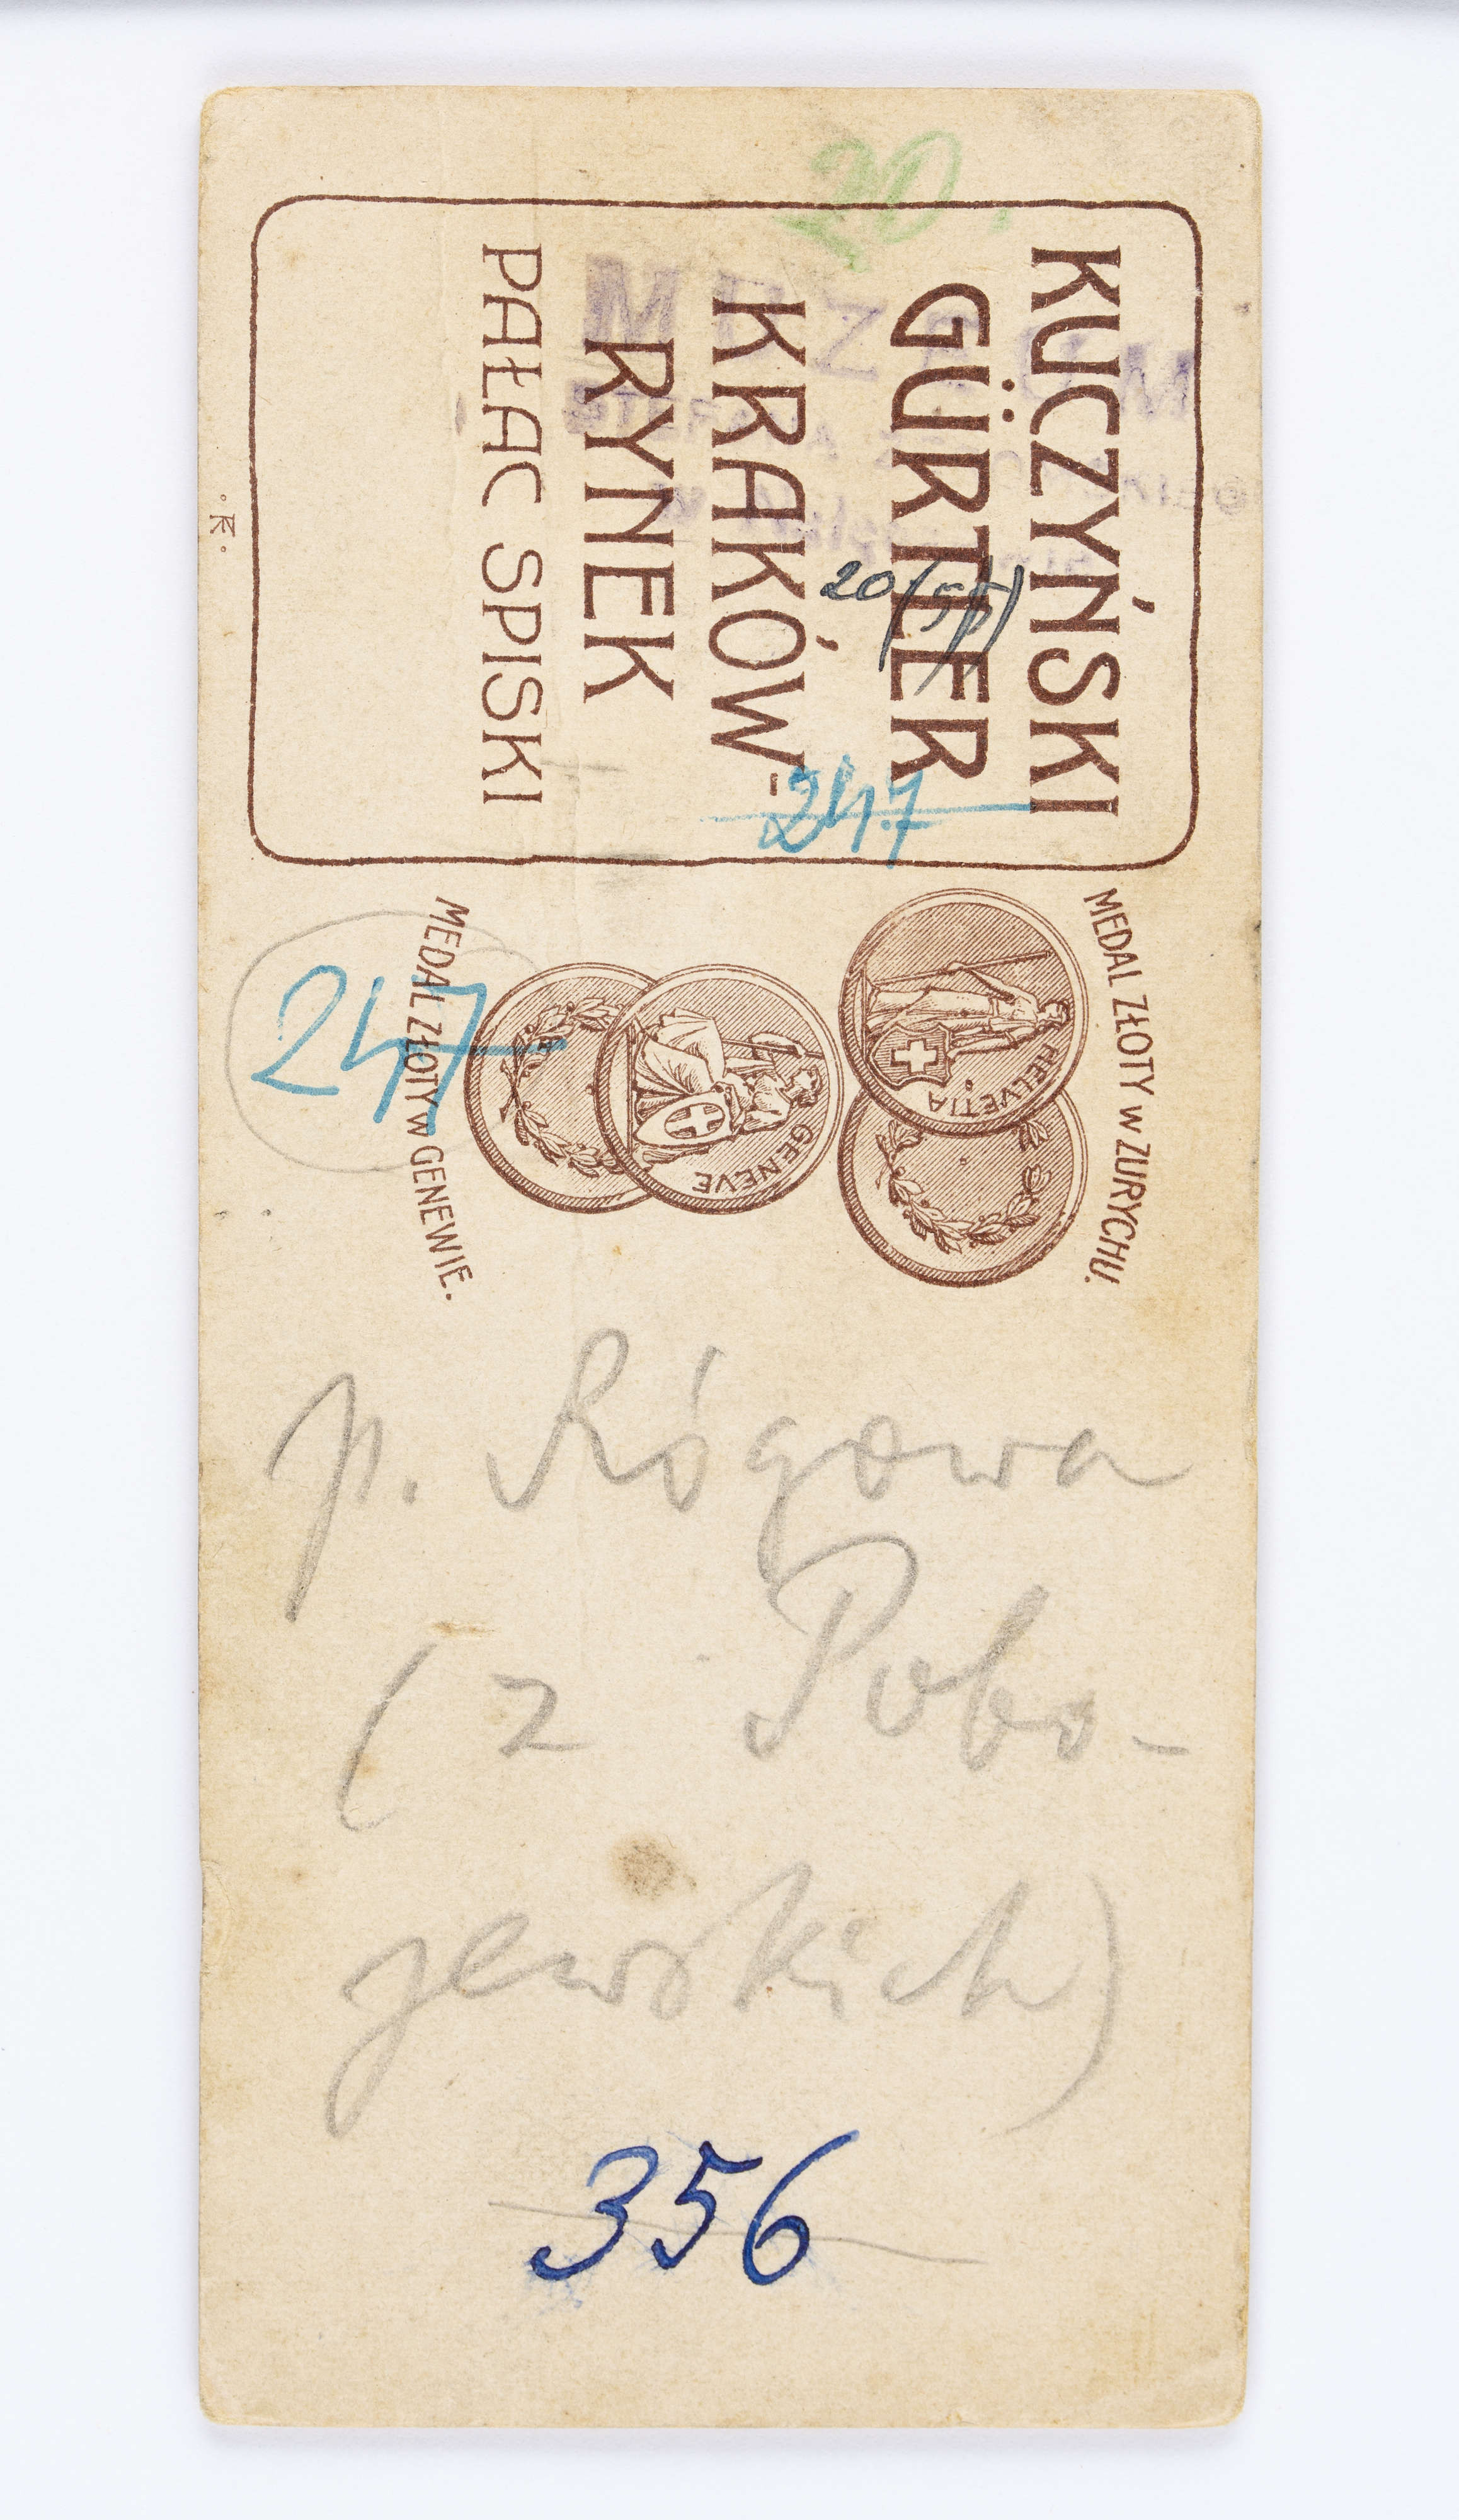 20.
KUCZYŃSKI
GÜRTLER
KRAKÓW-
RYNEK
PAŁAC SPISKI
MUZEUM
20
247
MEDAL ZŁOTY W ZURYCHU.
HELVETIA
GENEVE
MEDAL ZŁOTY W GENEWIE.
247
p. Rógowa
(z Pobo-
jewskich)
356